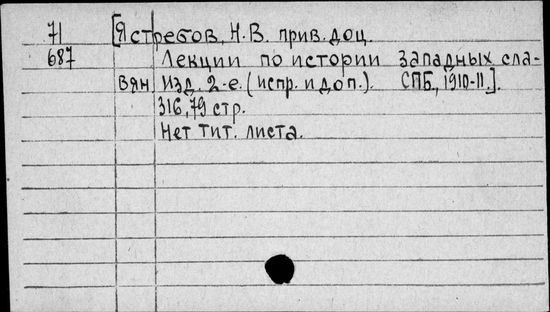 71 [Ястребов, Н.В. прив. доц.
687 Лекции по истории западных сла-
вян. Изд. 2-е. (испр. и доп.). СПБ., 1910-11.].
316, 79 стр.
Нет тит. листа.